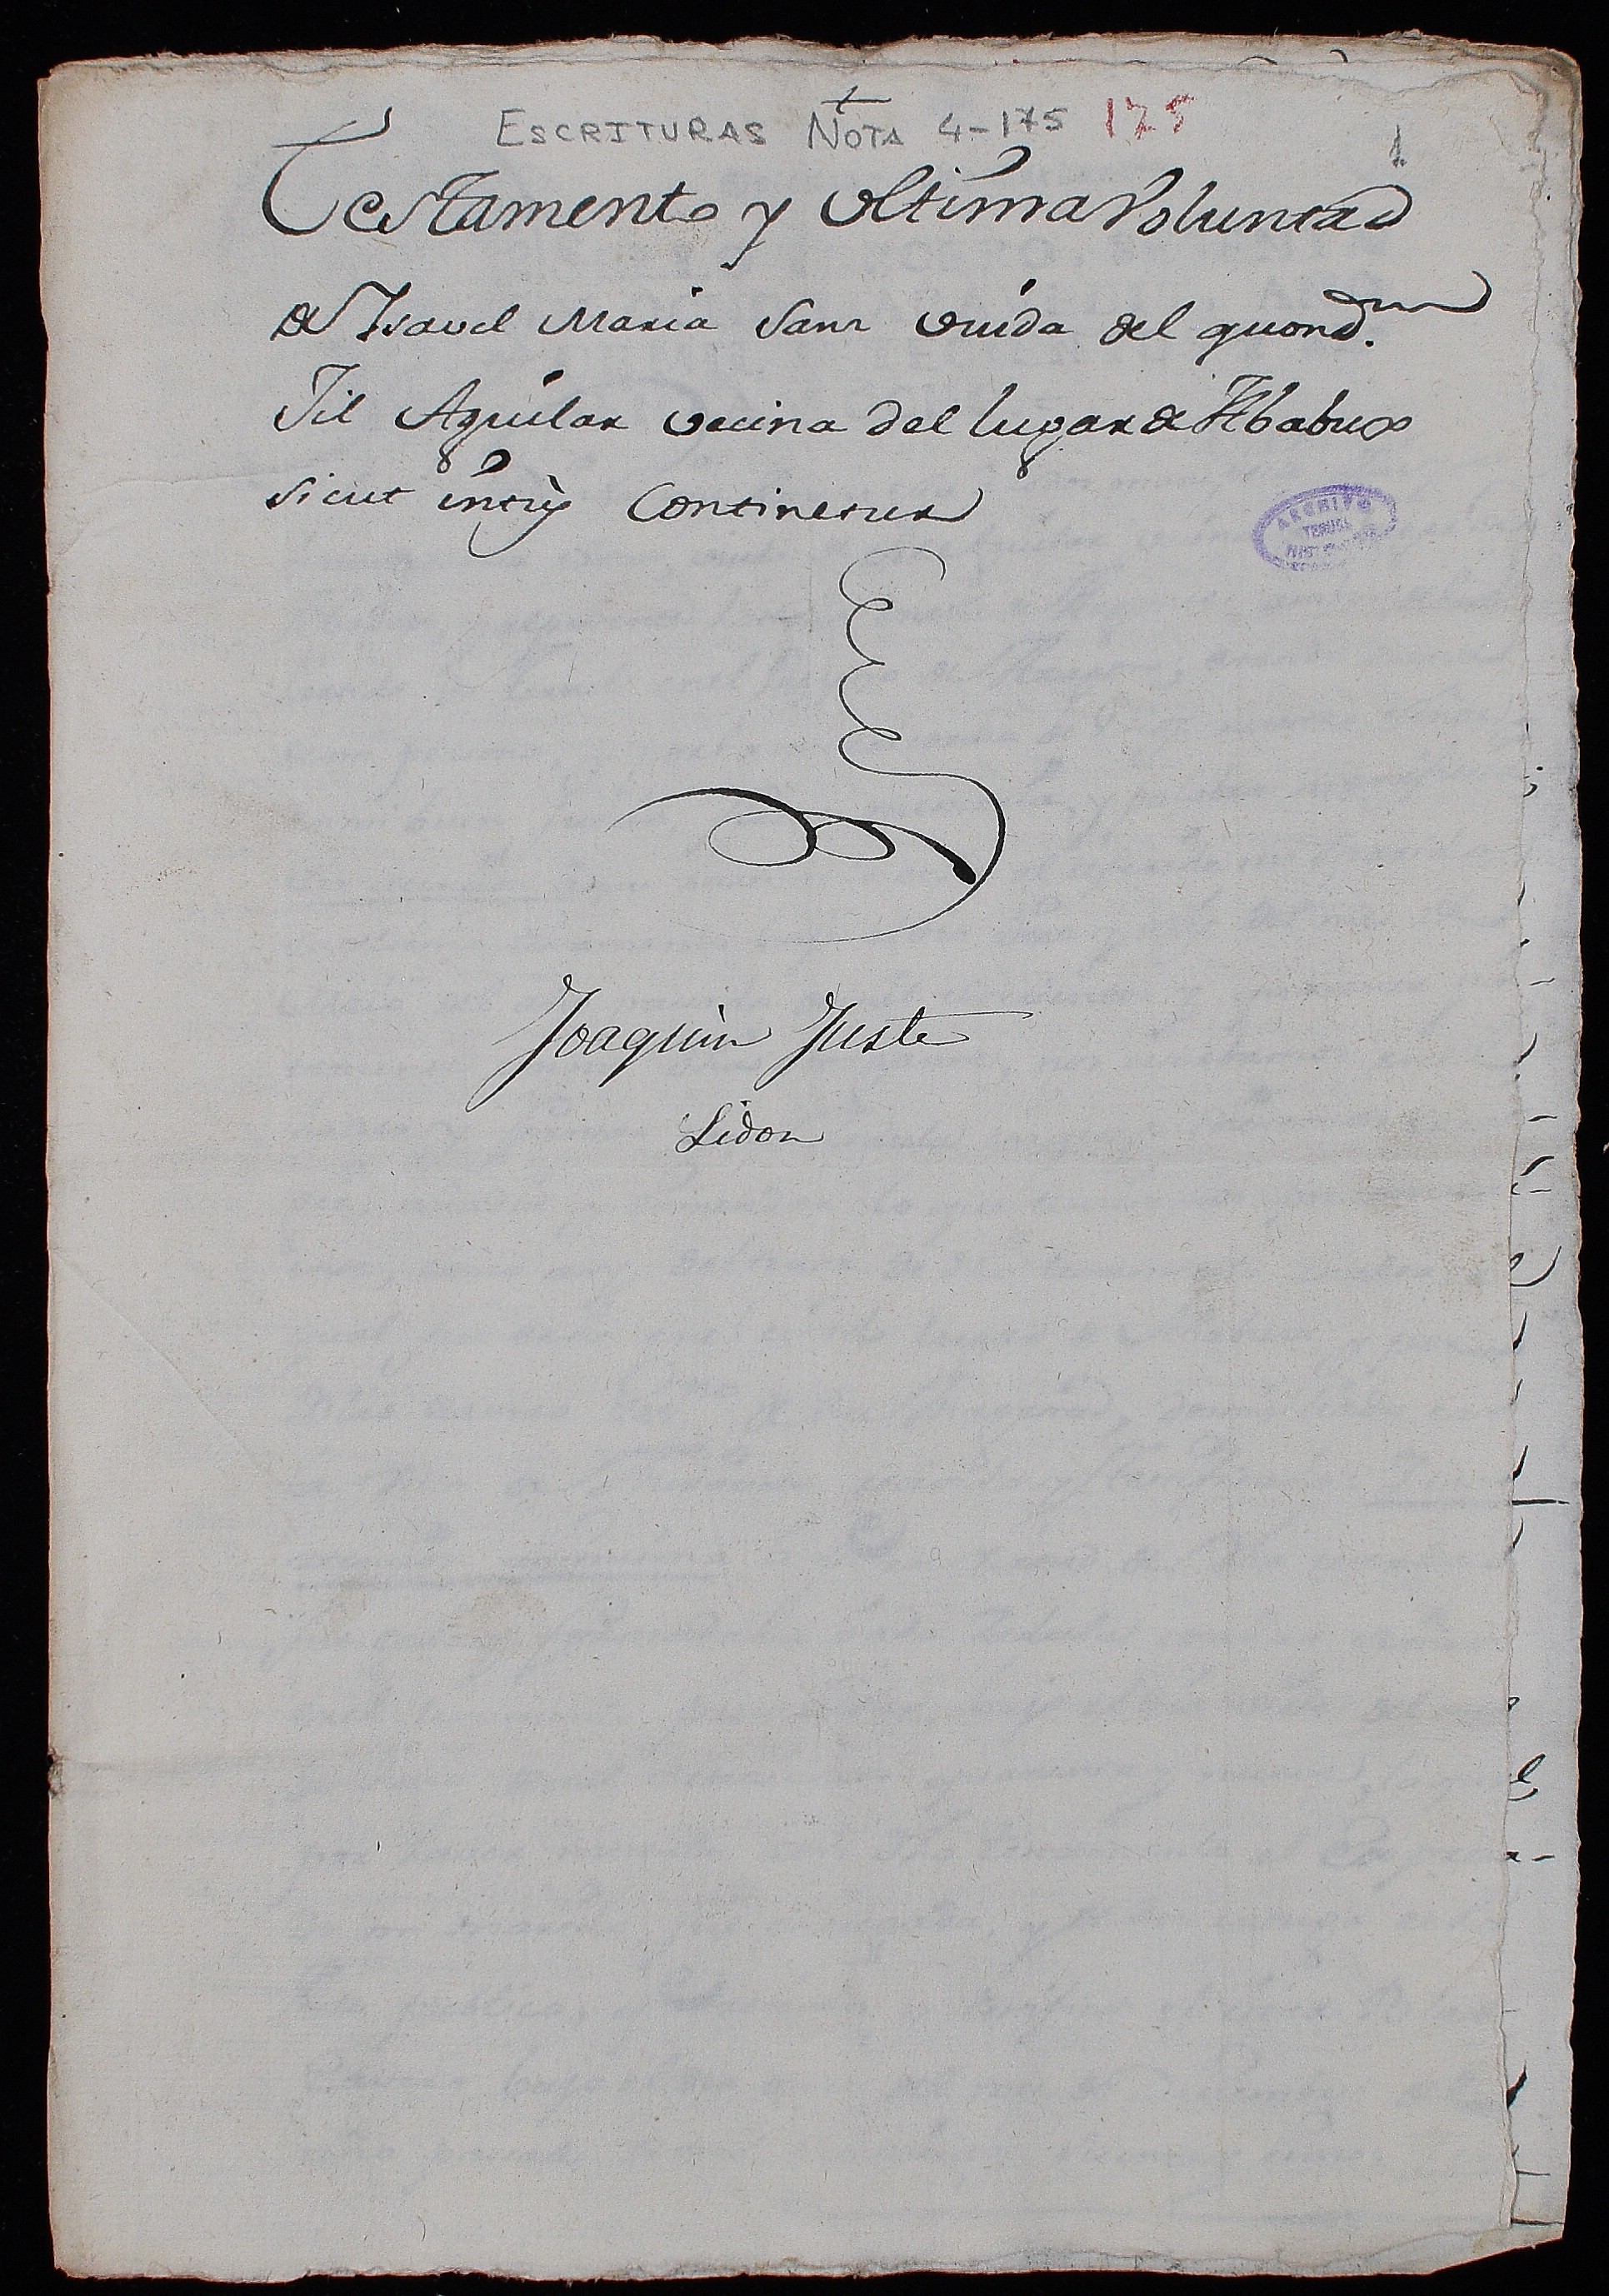 ESCRITURAS NOTA 4-175 175
1.
Testamento y vltima Voluntad
de Isavel Maria Sanz viuda del quond.m
Jil Aguilar vecina del lugar de Ababux
sicut intus Continetur
ARCHIVO
TERUEL
Joaquin Juste
Lidon